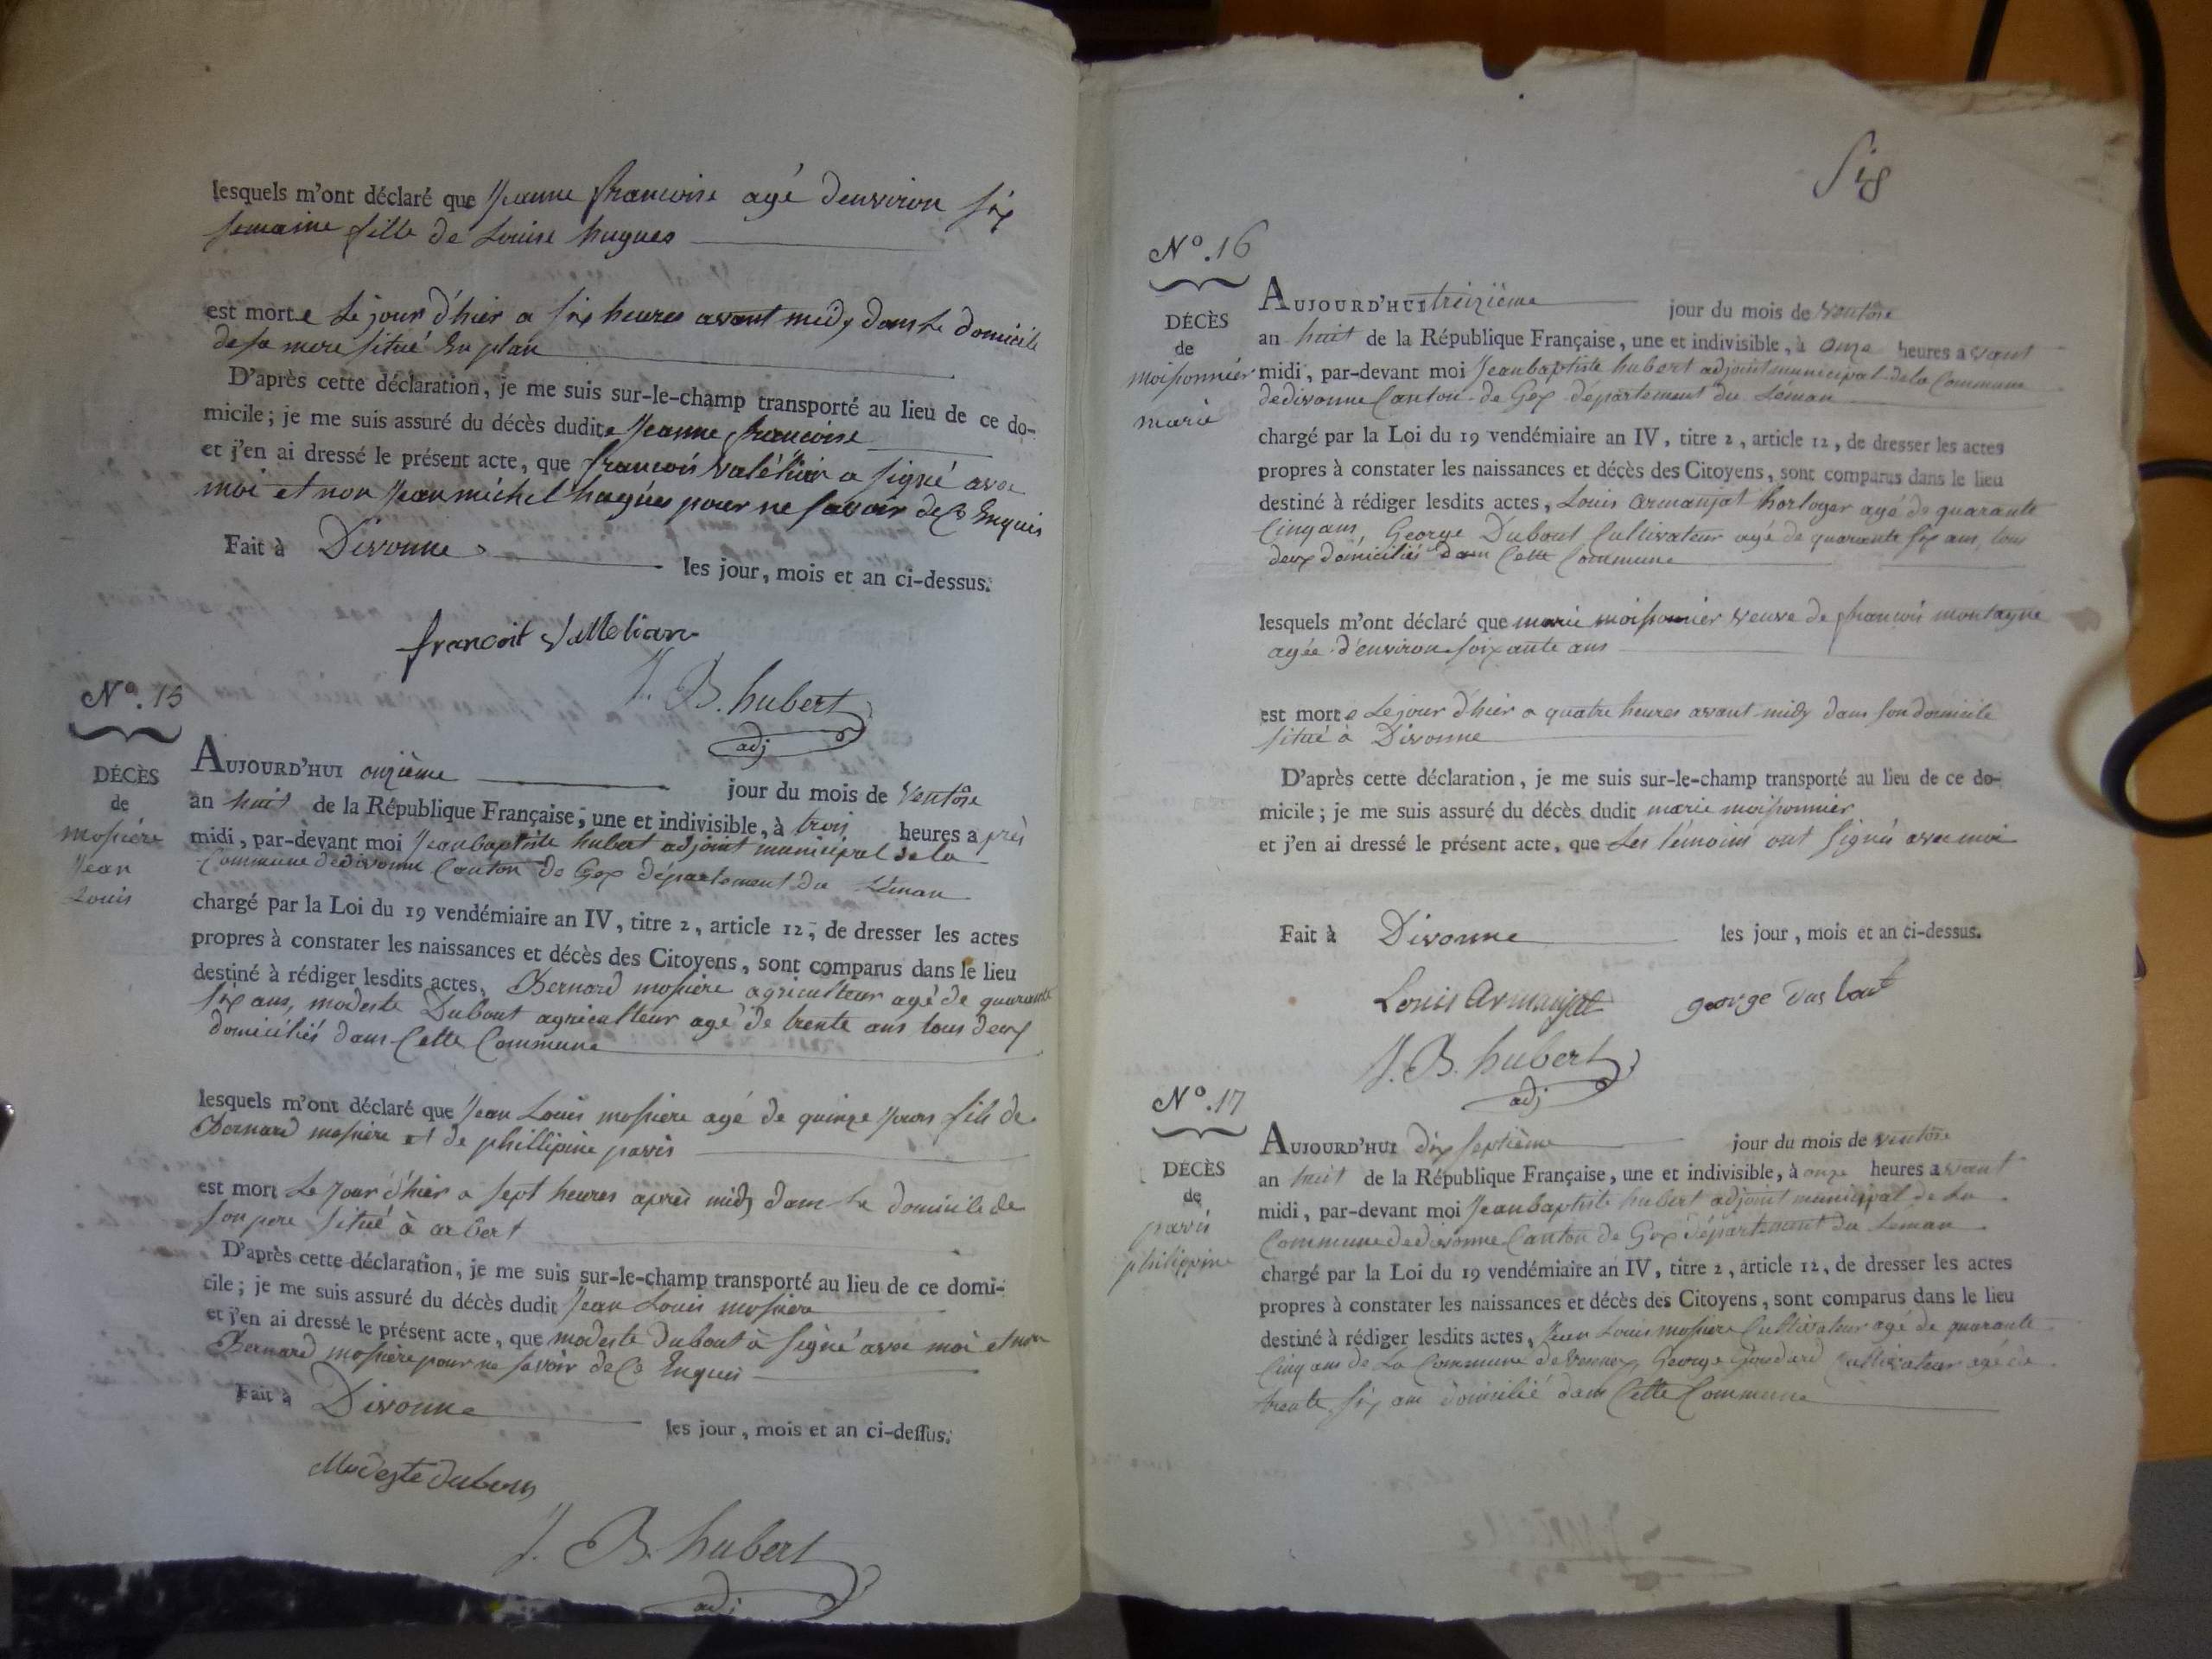 lesquels m'ont déclaré que Jeanne francoise agé denviron six
semaine fille de Louise hugues
est morte Le jour d'hier a six heures avant midy dans le domicile
de sa mere situé En plan
D'après cette déclaration, je me suis sur-le-champ transporté au lieu de ce do-
micile; je me suis assuré du décès dudite Jeanne francoise
et j'en ai dressé le présent acte, que francois valétian a signé avec
moi et non Jean michel hugues pour ne savoir de ce Enquis
Fait à Divonne les jour, mois et an ci-dessus.
francoit vattetian
J. B. hubert
adj
N°. 15
DÉCÈS
de
mosiére
Jean
Louis
AUJOURD'HUI onzième jour du mois de Ventôse
an huit de la République Française, une et indivisible, à trois heures après
midi, par-devant moi Jean baptiste hubert adjoint municipal de la
Commune de divonne Canton de Gex département du Léman
chargé par la Loi du 19 vendémiaire an IV, titre 2, article 12, de dresser les actes
propres à constater les naissances et décès des Citoyens, sont comparus dans le lieu
destiné à rédiger lesdits actes, Bernard mosiére agriculteur agé de quarante
six ans, modeste Dubout agriculteur agé de trente ans tous deux
domiciliés dans Cette Commune
lesquels m'ont déclaré que Jean Louis mosiére agé de quinze jours fils de
Bernard mosiére et de phillipine pavis
est mort Le jour d'hier a sept heures après midy dans le domicile de
son pere situé à arbert
D'après cette déclaration, je me suis sur-le-champ transporté au lieu de ce domi-
cile; je me suis assuré du décès dudit Jean Louis mosiére
et j'en ai dressé le présent acte, que modeste dubout à signé avec moi et non
Bernard mosiére pour ne savoir de Ce Enquis
Fait à Divonne les jour, mois et an ci-dessus.
Modeste dubous
J. B. hubert
adj
Six
N°. 16
DÉCÈS
de
moisonnier
marie
AUJOURD'HUI treizième jour du mois de Ventôse
an huit de la République Française, une et indivisible, à onze heures avant
midi, par-devant moi Jean baptiste hubert adjoint municipal de la Commune
de divonne Canton de Gex département du Léman
chargé par la Loi du 19 vendémiaire an IV, titre 2, article 12, de dresser les actes
propres à constater les naissances et décès des Citoyens, sont comparus dans le lieu
destiné à rédiger lesdits actes, Louis armanjat horloger agé de quarante
Cinq ans, George Dubout Cultivateur agé de quarante six ans, tous
deux domiciliés dans Cette Commune
lesquels m'ont déclaré que marie moisonnier veuve de francois montagne
agée d'environ soixante ans
est morte Le jour d'hier a quatre heures avant midy dans son domicile
situé à Divonne
D'après cette déclaration, je me suis sur-le-champ transporté au lieu de ce do-
micile; je me suis assuré du décès dudit marie moisonnier
et j'en ai dressé le présent acte, que Les témoins ont signés avec moi
Fait à Divonne les jour, mois et an ci-dessus.
Louis Armanjat george dus bout
J. B. hubert
adj
N°. 17
DÉCÈS
de
pavis
philippine
AUJOURD'HUI dix septième jour du mois de ventôse
an huit de la République Française, une et indivisible, à onze heures avant
midi, par-devant moi Jean baptiste hubert adjoint municipal de la
Commune de divonne Canton de Gex département du Léman
chargé par la Loi du 19 vendémiaire an IV, titre 2, article 12, de dresser les actes
propres à constater les naissances et décès des Citoyens, sont comparus dans le lieu
destiné à rédiger lesdits actes, Jean Louis mosiére Cultivateur agé de quarante
Cinq ans de La Commune de George Cultivateur agé de
trente six ans domicilié dans Cette Commune